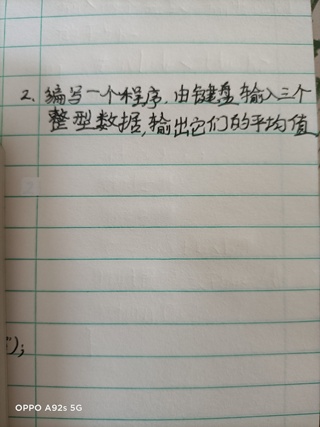 2、编写一个程序,由键盘输入三个
整型数据,输出它们的平均值
");
OPPO A92s 5G